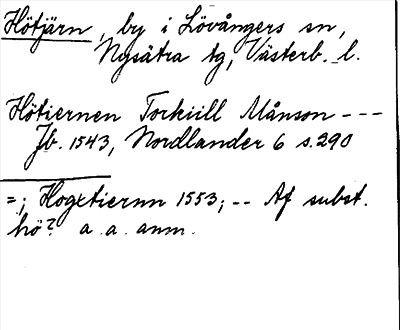 Hötjärn, by i Lövångers sn,
Nysätra tg, Västerb. l.
Hötiernen Torkiill Månson ---
Jb. 1543, Nordlander 6 s. 290
=; Hogxtiernn 1553; -- Af subst.
hö? a. a. anm.